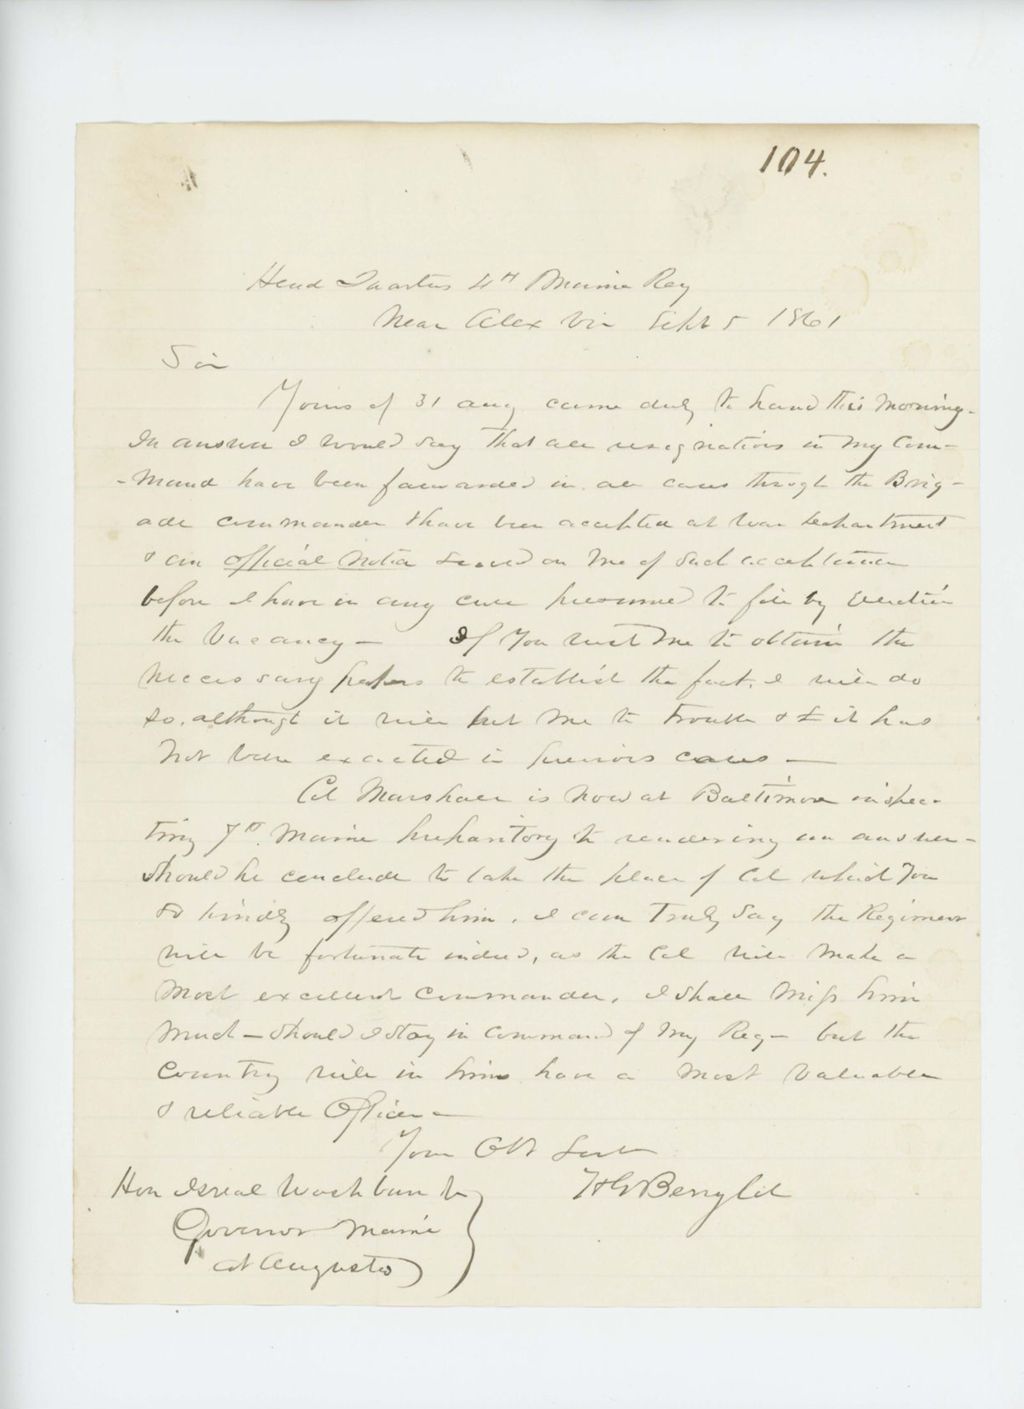 104.
Head Quarters 4th Maine Reg
Near Alex Via Sept 5 1861
Sir
Yours of 31 Aug came duly to hand this Morning-
In answer I would say that all resignations in My Com-
-mand have been forwarded in all cases through the Brig-
ade commander & have been accepted at War Department
& an official Notice served on Me of such acceptance
before I have in any case presumed to fill by election
the Vacancy — If You wish Me to obtain the
Necessary papers to establish the fact, I will do
so, although it will put Me to trouble & it has
Not been exacted in previous cases —
Col Marshall is Now at Baltimore inspec-
ting 7th. Maine preparitory to rendering an answer-
Should he conclude to take the place of Col which You
so kindly offered him, I can Truly Say the Regiment
will be fortunate indeed, as the Col will Make a
Most excellent Commander, I shall Miss him
Much — Should I stay in Command of My Reg — but the
Country will in him have a Most Valuable
& reliable Officer —
Your Obt Servt
H G Berry Col
Hon Isreal Washburn Jr
Governor Maine
at Augusta